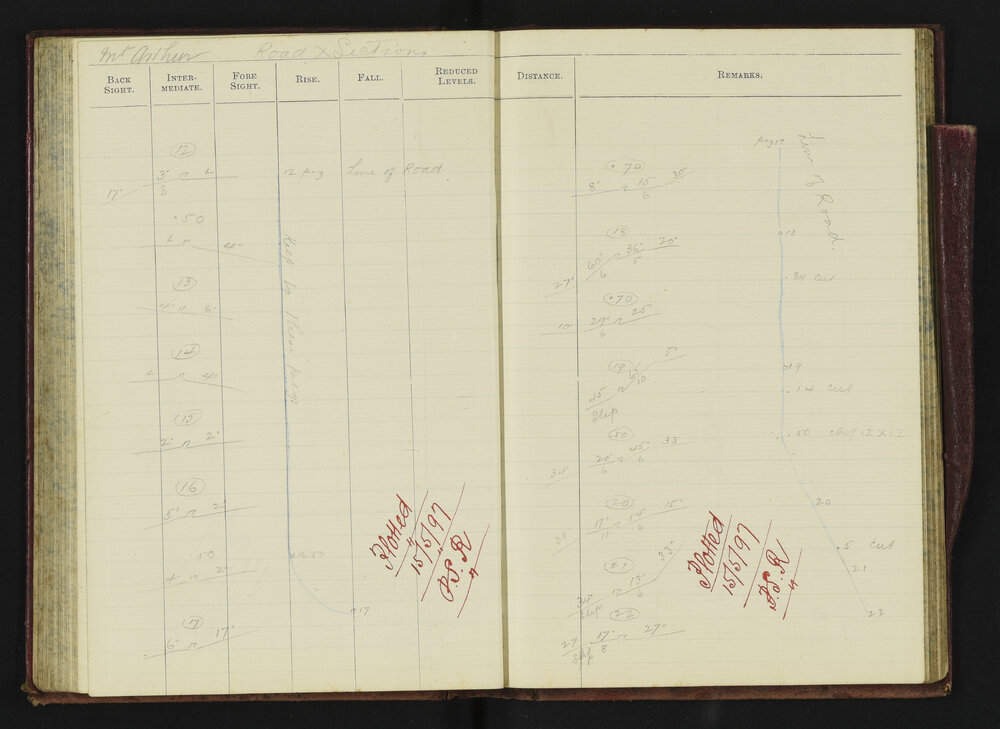 Mt Arthur Road X Sections
BACK SIGHT. INTER-MEDIATE. FORE SIGHT. RISE. FALL. REDUCED LEVELS.
12
17° 3° n L 12 peg Line of Road
8
.50
L n 4°
13
4° n 6°
Keep to these pegs
14
L n 4°
15
2° n 2°
16
5° n 2°
50
4 n 2° 16.50
17
17
6° n 17°
Plotted
15/5/97
DISTANCE. REMARKS.
peg 17
Line of Road
.70
8° n 15° 30°
6
18
27° 60° n 36° 20°
6 5
18
.84 cut
.70
10 29° n 25°
6
19
45 n 65 5°
10
Slip
19
.14 cut
.50
34° 20° n 45° 33°
6 6
.50 clvt 12 X 12
20
25 17° n 54° 15°
11 6
20
.5 cut
21
n 13° 33°
6
Slip
21
22
27 17° n 27°
8
Slip
22
Plotted
15/5/97